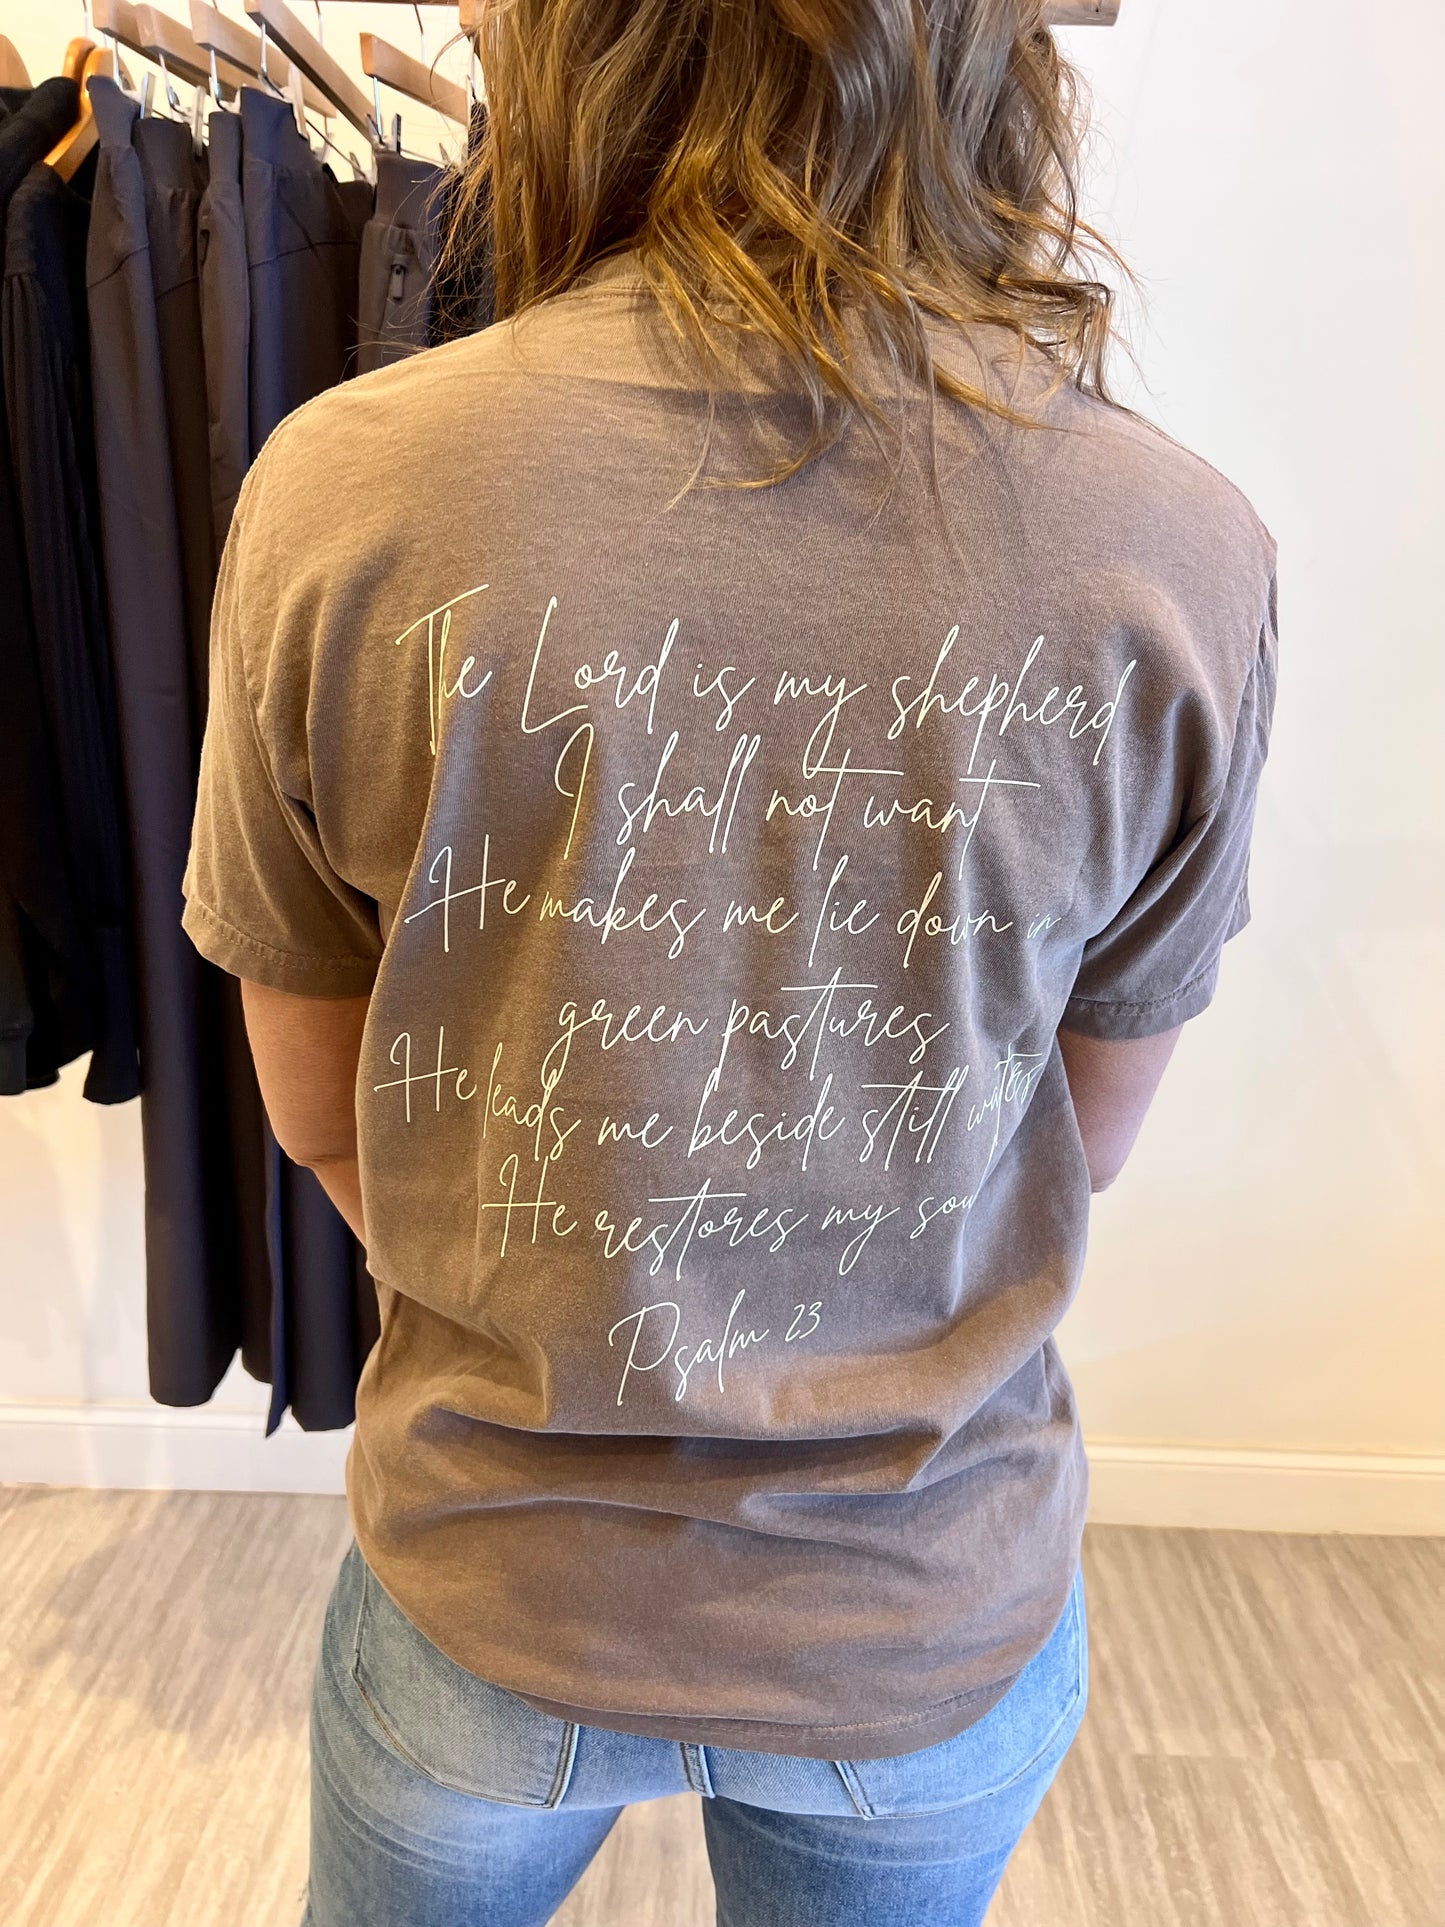 The Lord is my shepherd
I shall not want
He makes me lie down in
green pastures
He leads me beside still waters
He restores my soul
Psalm 23